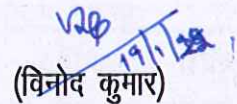 19/1/
(विनोद कुमार)